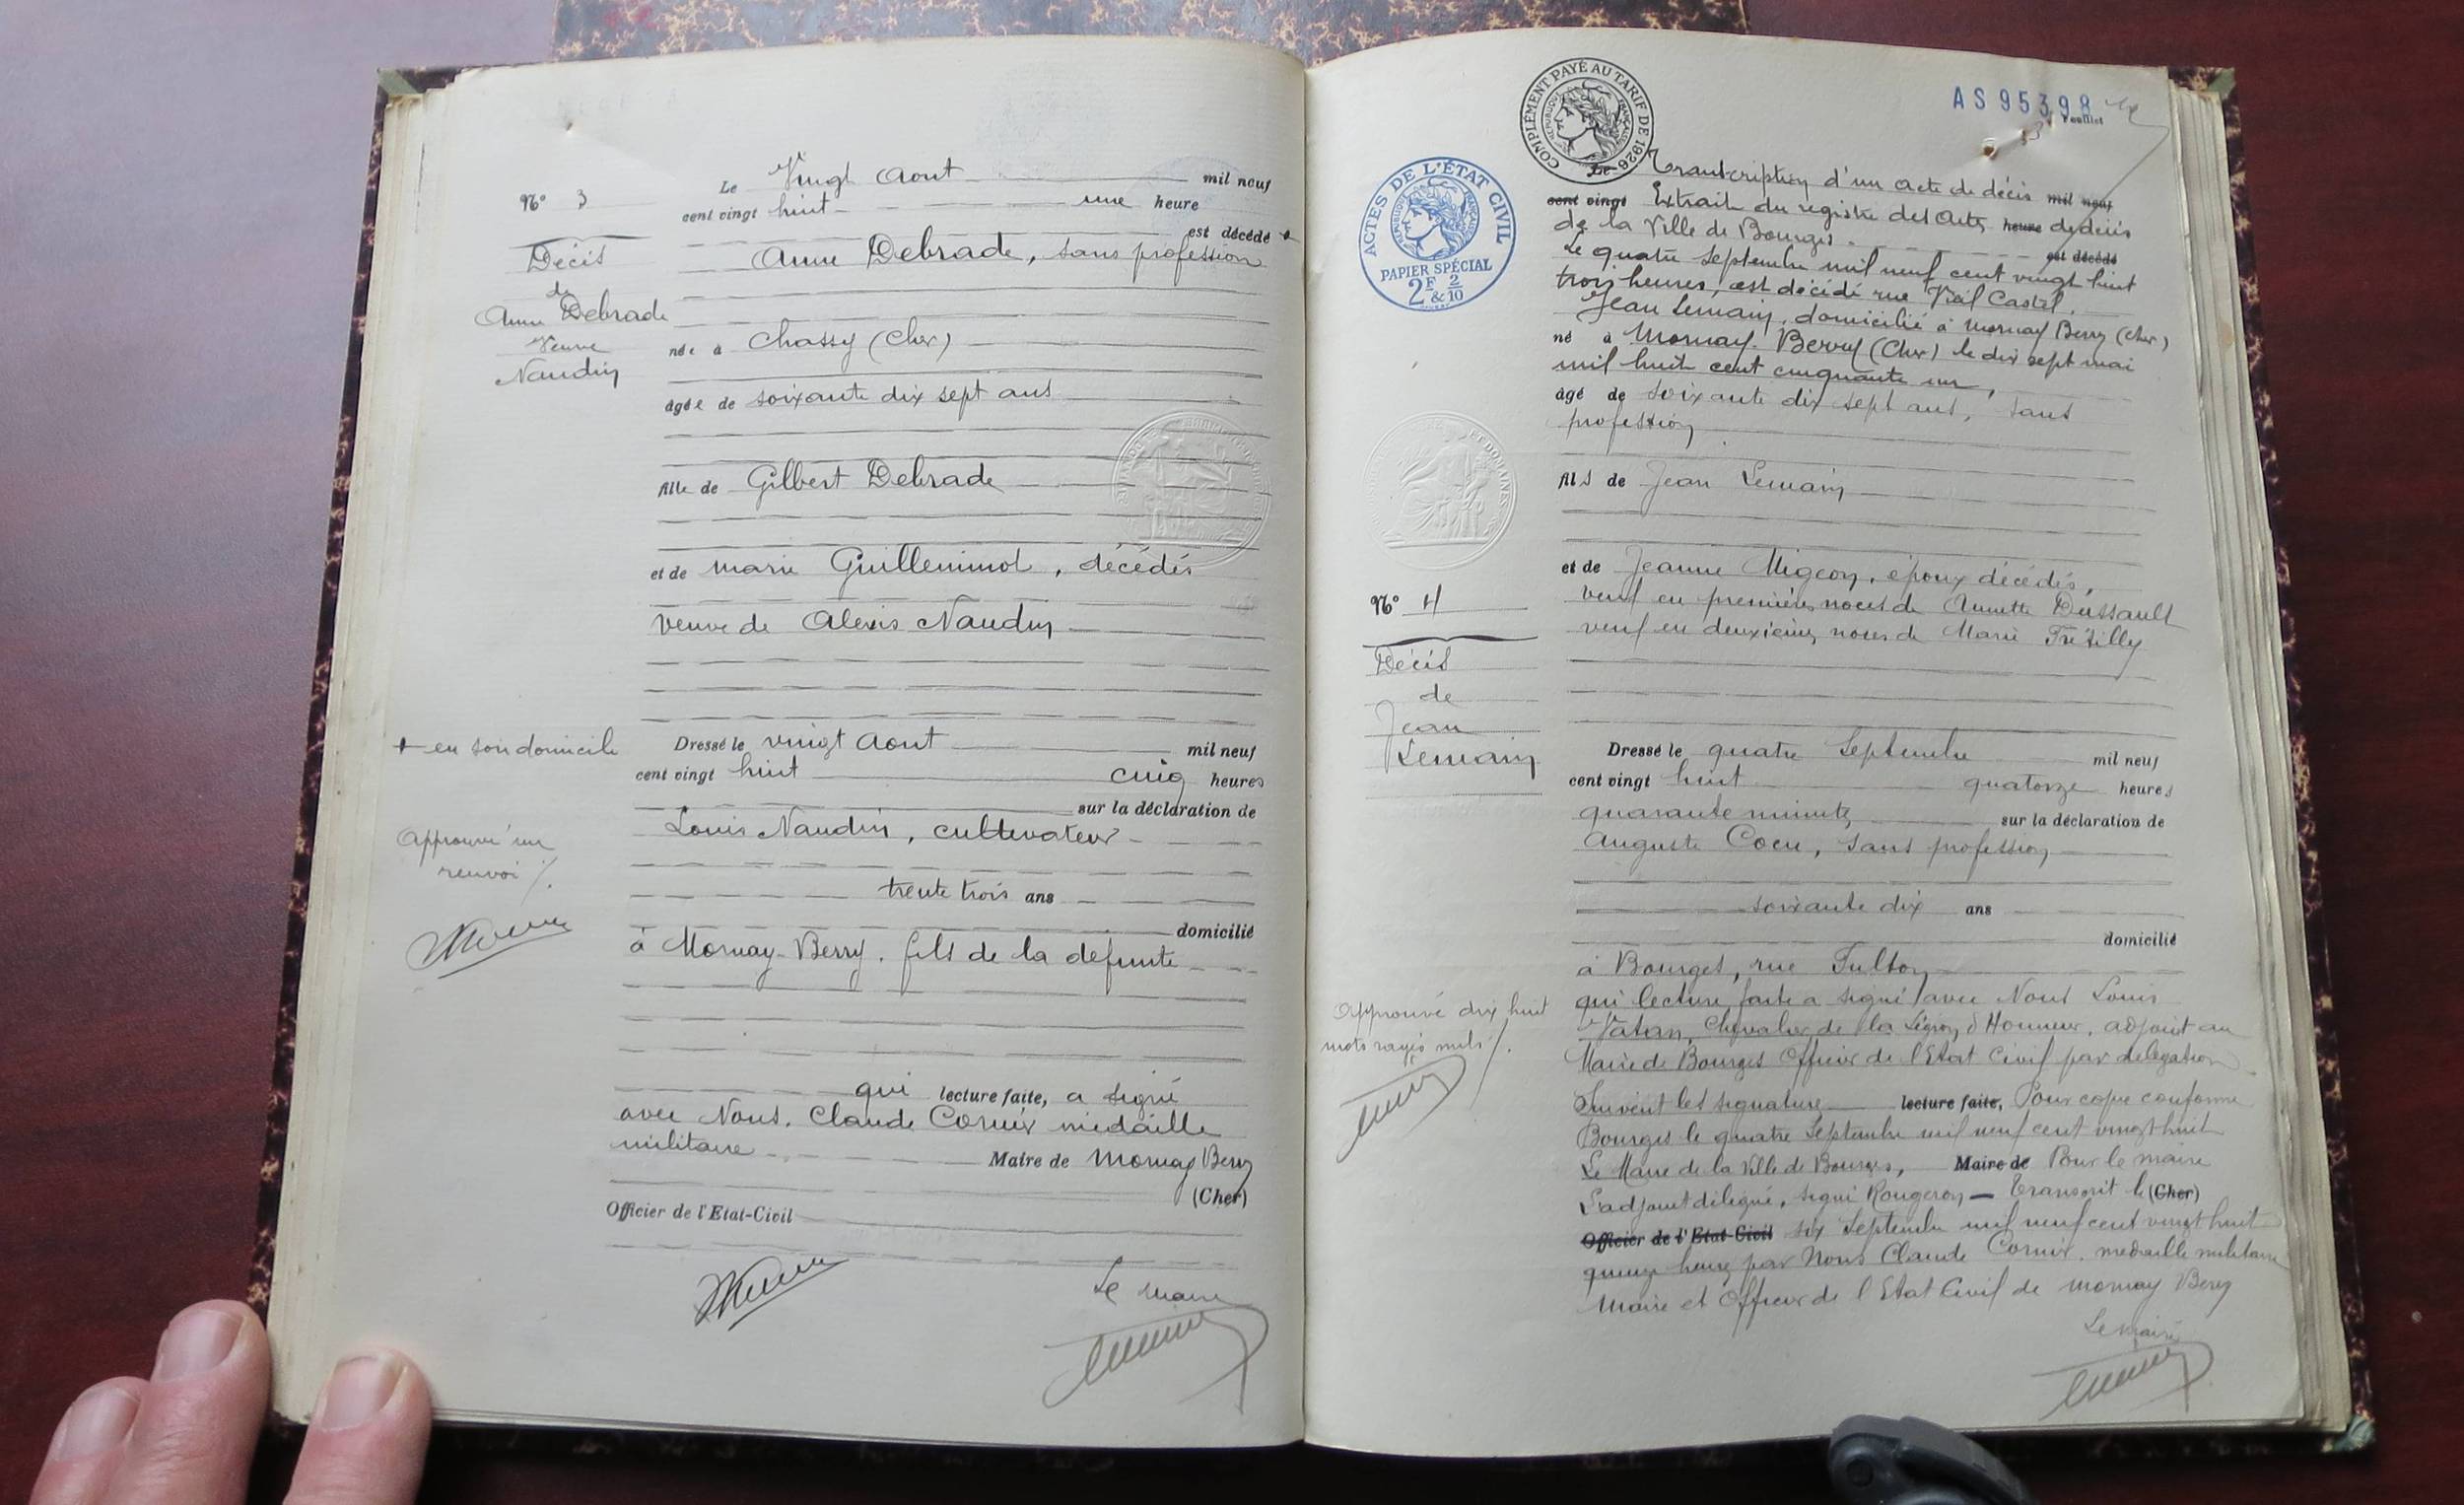 N° 3
Décès
de
Anne Debrade
Veuve
Naudin
Le Vingt Aout mil neuf
cent vingt huit une heure
est décédé +
Anne Debrade, sans profession
née à Chassy (Cher)
âgée de soixante dix sept ans
fille de Gilbert Debrade
et de marie Guilleminot, décédés
veuve de Alexis Naudin
+ en son domicile
Dressé le vingt Aout mil neuf
cent vingt huit cinq heures
sur la déclaration de
Louis Naudin, cultivateur
Approuvé un
renvoi /.
trente trois ans
domicilié
à Mornay-Berry. fils de la défunte
qui lecture faite, a signé
avec Nous. Claude Cornix médaille
militaire Maire de Mornay Berry
(Cher)
Officier de l'Etat-Civil
Le Maire
COMPLÉMENT PAYÉ AU TARIF DE 1926
AS 95398
Feuillet
ACTES DE L'ÉTAT CIVIL
RÉPUBLIQUE FRANÇAISE
PAPIER SPÉCIAL
2F & 2/10
Le Transcription d'un acte de décès mil neuf
cent vingt Extrait du registre des Actes heure de décès
de la Ville de Bourges. est décédé
Le quatre Septembre mil neuf cent vingt huit
trois heures, est décédé rue Vieil Castel.
Jean Lemain, domicilié à Mornay Berry (Cher)
né à Mornay-Berry (Cher) le dix sept mai
mil huit cent cinquante un,
âgé de soixante dix sept ans, sans
profession
fils de Jean Lemain
et de Jeanne Migeon, époux décédés,
veuf en premières noces de Annette Dussault
veuf en deuxièmes noces de Marie Trésilly
N° 4
Décès
de
Jean
Lemain
Dressé le quatre Septembre mil neuf
cent vingt huit quatorze heures
quarante minutes sur la déclaration de
Auguste Cocu, sans profession
soixante dix ans
domicilié
à Bourges, rue Fulton
qui lecture faite a signé avec Nous Louis
Vatan, Chevalier de la Légion d'Honneur, adjoint au
Maire de Bourges Officier de l'Etat Civil par délégation
Suivent les signatures lecture faite, Pour copie conforme
Bourges le quatre Septembre mil neuf cent vingt huit
Le Maire de la Ville de Bourges, Maire de Pour le maire
L'adjoint délégué, signé Rougeron — Transcrit le (Cher)
Officier de l'Etat-Civil six Septembre mil neuf cent vingt huit
quinze heures par Nous Claude Cornix. médaille militaire
Maire et Officier de l'Etat Civil de Mornay Berry
Approuvé dix huit
mots rayés nuls /.
Le Maire